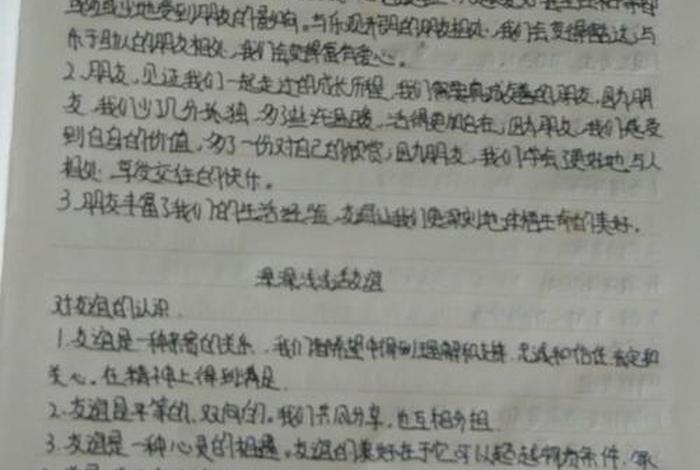 或多或少地受到朋友的影响。与乐观开朗的朋友相处,我们会变得豁达;与
乐于助人的朋友相处,我们会变得富有爱心。
2、朋友,见证我们一起走过的成长历程,我们需要真诚友善的朋友,因为朋
友,我们少了几分孤独,多了些许温暖,活得更加自在,因为朋友,我们感受
到自身的价值,多了一份对自己的欣赏,因为朋友,我们学会了更好地与人
相处,享受交往的快乐。
3、朋友丰富了我们的生活经验,友谊让我们更深刻地体悟生命的美好。
深深浅浅话友谊
对友谊的认识
1、友谊是一种亲密的关系,我们都希望中得到理解和支持,忠诚和信任,肯定和
关心。在精神上得到满足
2、友谊是平等的,双向的。我们共同分享,也互相分担
3、友谊是一种心灵的相遇。友谊的美好在于它可以超越物质条件、家